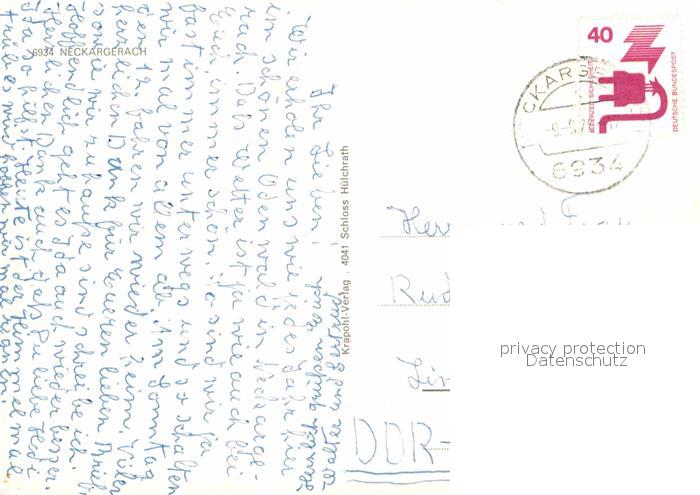 6934 NECKARGERACH
Ihr Lieben!
Wir erholen uns wie jedes Jahr hier
im schönen Odenwald in Neckarge-
rach. Das Wetter ist ja wie auch bei
Euch immer schön, so sind wir ja
fast immer unterwegs und so schalten
wir mal von allem ab. Am Sonntag
den 12. fahren wir wieder heim. Vielen
herzlichen Dank für Eueren lieben Brief,
wie wir zuhause sind schreibe ich.
Hoffendlich geht es ja auch wieder besser.
Herzlichen Dank auch, daß Du liebe
ja so hilfst. Heute ist der Himmel mal
trübe
Walter und Gertrud
Krapohl-Verlag · 4041 Schloss Hülchrath
40
JEDERZEIT SICHERHEIT
DEUTSCHE BUNDESPOST
6934
Herr
Rud
DDR-
privacy protection
Datenschutz